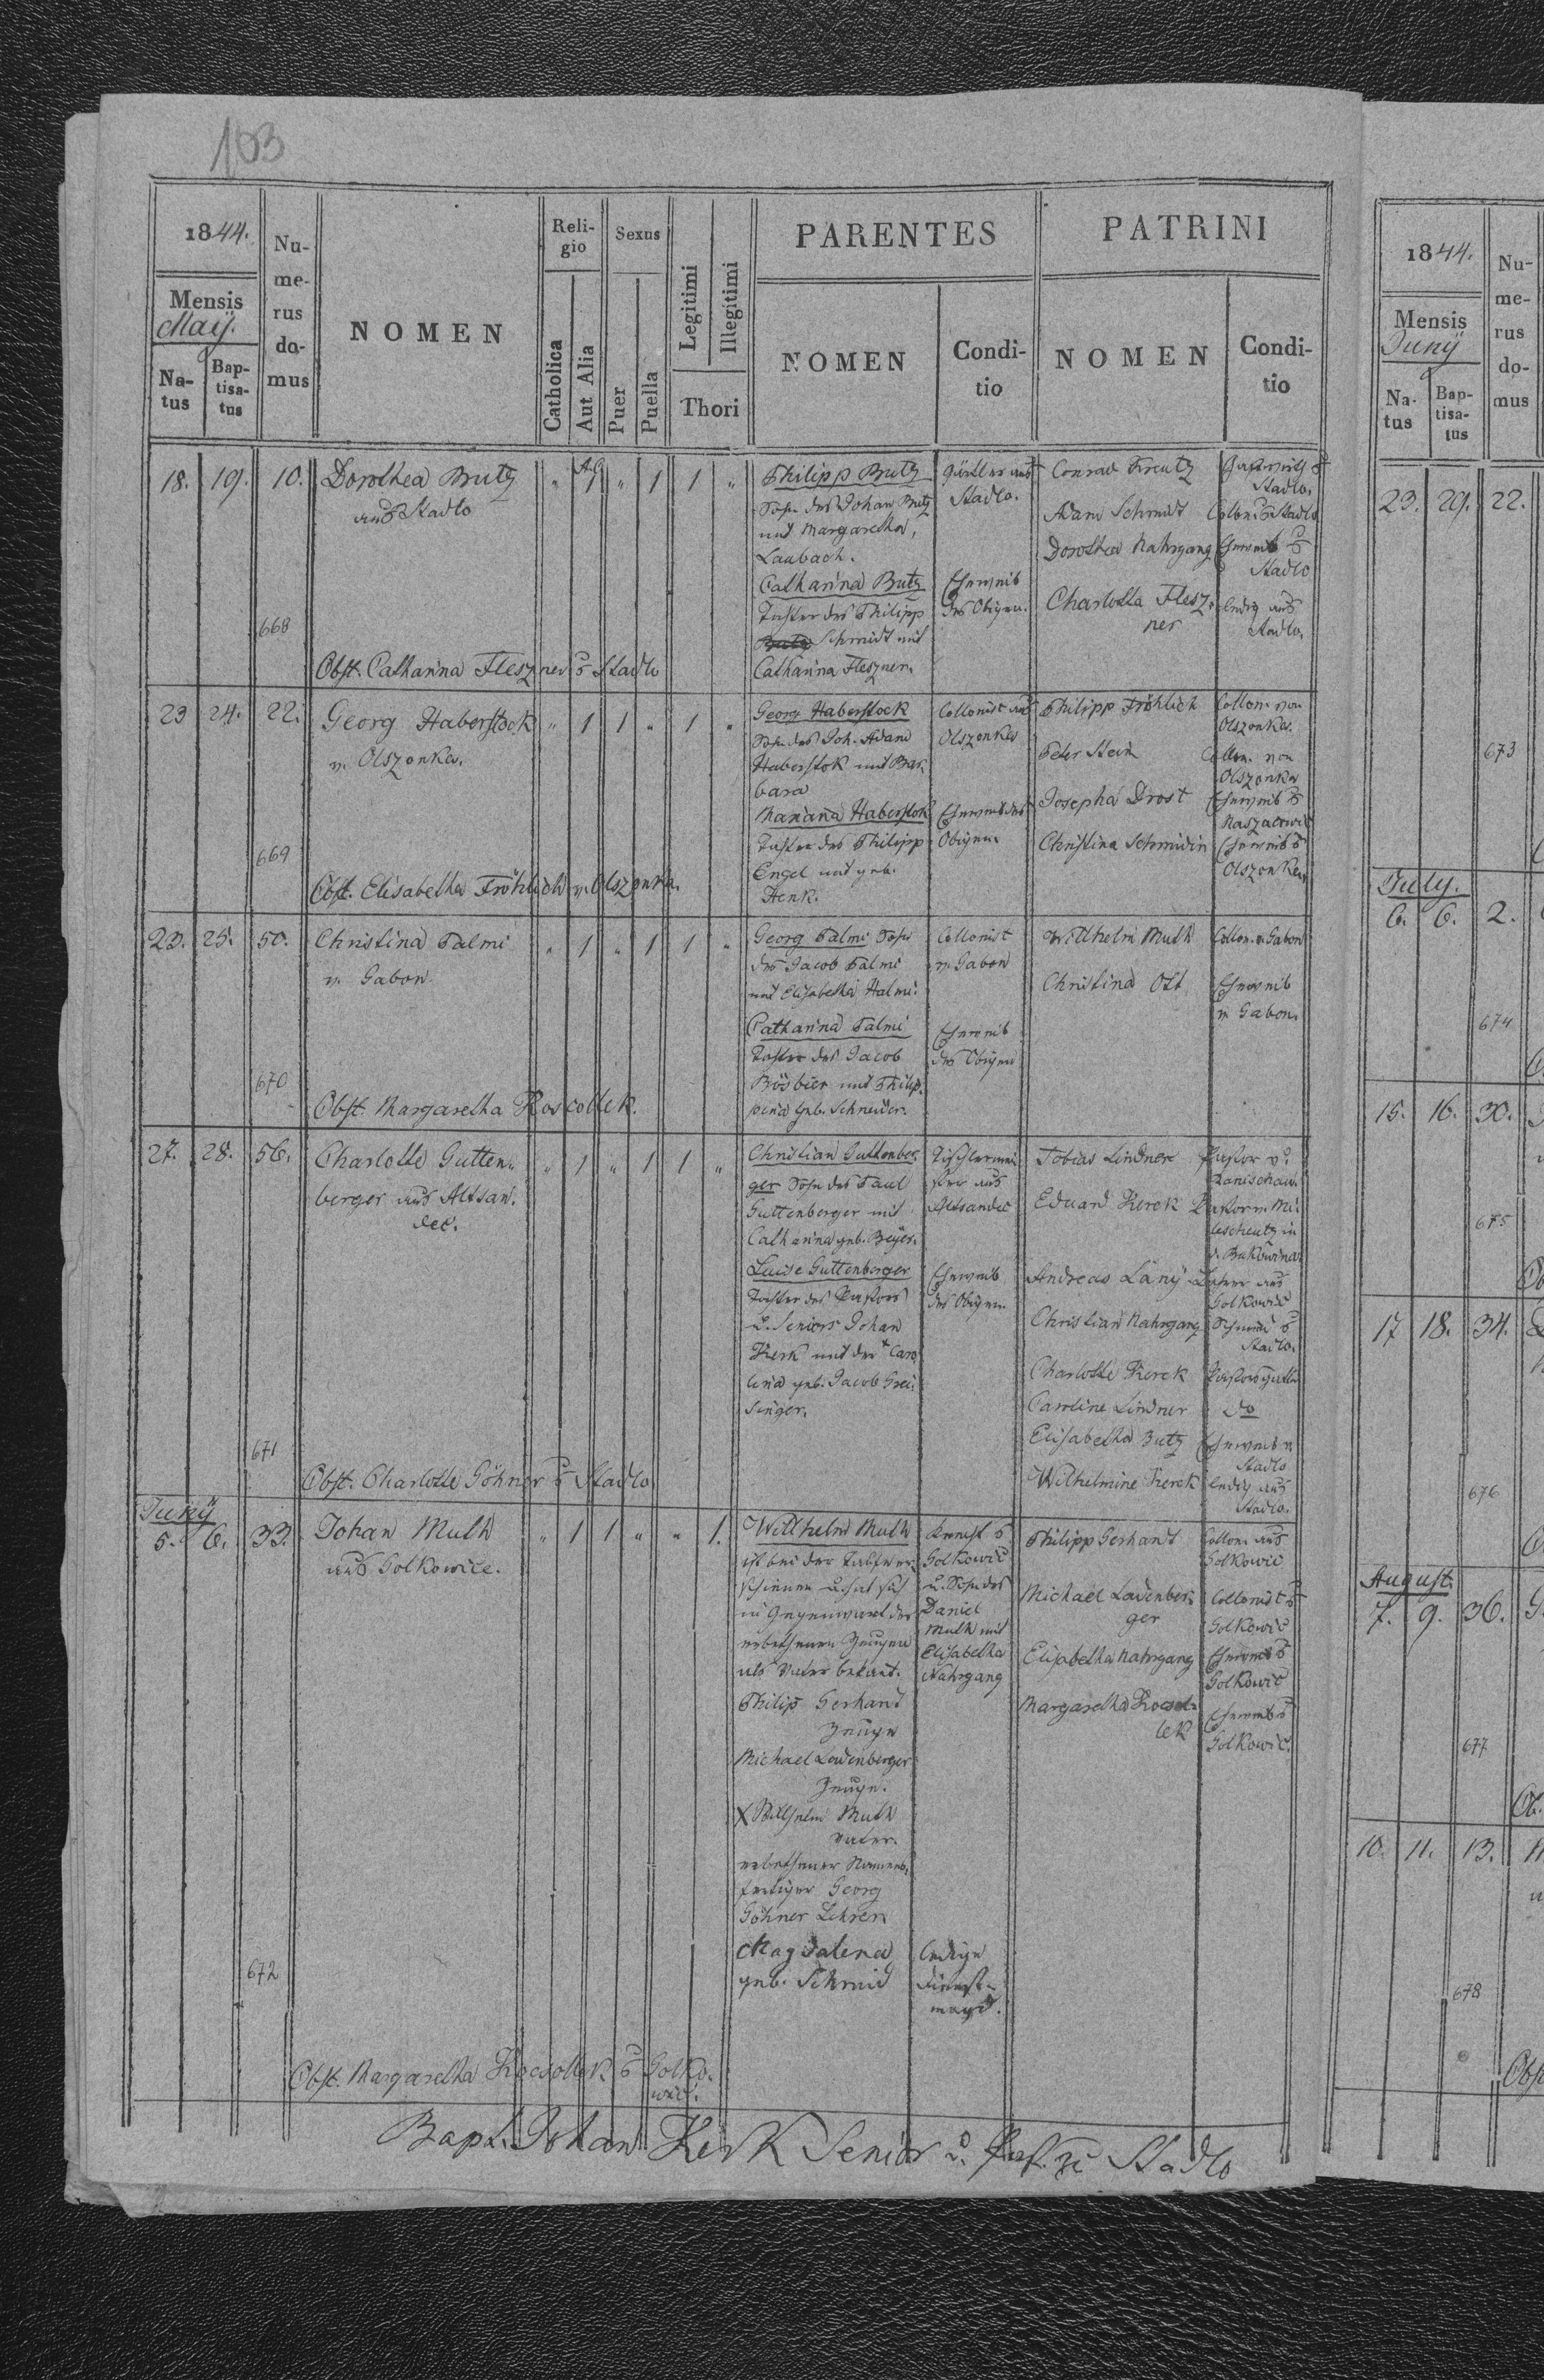 103
1844.
Mensis
Maij.
Na-
tus
Bap-
tisa-
tus
Nu-
me-
rus
do-
mus
NOMEN
Reli-
gio
Catholica
Aut Alia
Sexus
Puer
Puella
Legitimi
Illegitimi
Thori
PARENTES
NOMEN
Condi-
tio
PATRINI
NOMEN
Condi-
tio
18. 19. 10. Dorothea Butz " A.C. 1 " 1 1 "
aus Stadlo
668
Obst. Catharina Fleszner Stadlo
Philipp Butz
Sohn des Johan Butz
und Margaretha,
Laubach.
Catharina Butz
Tochter des Philipp
Schmidt und
Catharina Fleszner.
Gärtler aus
Stadlo.
Eheweib
des Obigen.
Conrad Kreutz
Adam Schmidt
Dorothea Nahrgang
Charlotta Flesz-
ner
Stadlo.
Colon. Stadlo
Eheweib
Stadlo
ledig aus
Stadlo.
23 24. 22. Georg Haberstock " 1 1 " 1 "
v. Olszonka.
669
Obst. Elisabetha Fröhlich v. Olszonka.
Georg Haberstock
Sohn des Joh. Adam
Haberstok und Bar-
bara
Mariana Haberstok
Tochter des Philipp
Engel und geb.
Henk.
Collonist aus
Olszonka
Eheweib des
Obigen.
Philipp Fröhlich
Peter Stein
Josepha Drost
Christina Schmidin
Collon. von
Olszonka.
Collon. von
Olszonka
Eheweib
Naszacowic
Eheweib
Olszonka
23. 25. 50. Christina Palmi " 1 " 1 1 "
v. Gabon
670
Obst. Margaretha Koscollek.
Georg Palmi Sohn
des Jacob Palmi
und Elisabetha Halmi.
Catharina Palmi
Tochter des Jacob
Bösbier und Philip-
pina geb. Schneider.
Collonist
v. Gabon
Eheweib
des Obigen
Willhelm Muth
Christina Ott
Collon. v. Gabon
Eheweib
v. Gabon.
27. 28. 56. Charlotte Gutten- " 1 " 1 1 "
berger aus Altsan-
dec.
671
Obst. Charlotte Göhner Stadlo
Christian Guttenber-
ger Sohn des Paul
Guttenberger und
Catharina geb. Beyer.
Luise Guttenberger
Tochter des Pastors
u. Seniors Johan
Kerk und der Caro-
lina geb. Jacob Grei-
singer.
Tischlermei-
ster aus
Altsandec
Eheweib
des Obigen.
Tobias Lindner
Eduard Kerck
Andreas Lány
Christian Nahrgang
Charlotte Kerck
Caroline Lindner
Elisabetha Butz
Wilhelmine Kerck
Pastor v.
Ranischau.
Pastor v. Mi-
lescheutz in
d. Bukowina.
Lehrer aus
Golkowic
Schmied
Stadlo.
Pastorsgattin
do
Eheweib v.
Stadlo
ledig aus
Stadlo.
Junÿ
5. 6. 33. Johan Muth " 1 1 " " 1.
aus Golkowice.
672
Obst. Margaretha Kocsollek Golko-
wic.
Willhelm Muth
ist bei der Taufe er-
schienen u. hat sich
in Gegenwart der
erbethenen Zeugen
als Vater bekant.
Philip Gerhard
Zeuge
Michael Ladenberger
Zeuge.
X Willhelm Muth
Vater.
erbethener Namens-
fertiger Georg
Göhner Lehrer
Magdalena
geb. Schmid
Knecht
Golkowic
u. Sohn des
Daniel
Muth und
Elisabetha
Nahrgang
ledige
Dienst-
magd.
Philipp Gerhardt
Michael Ladenber-
ger
Elisabetha Nahrgang
Margaretha
lek
Collon. aus
Golkowic
Collonist
Golkowic
Eheweib
Golkowic
Eheweib
Golkowic.
Bapt. Johan Kerk Senior u. Past. zu Stadlo
1844.
Mensis
Junÿ
Na-
tus
Bap-
tisa-
tus
Nu-
me-
rus
do-
mus
23. 29. 22.
673
July.
6. 6. 2.
674
15. 16. 30.
675
17 18. 34.
676
August.
7. 9. 36.
677
10. 11. 13.
678
Obst